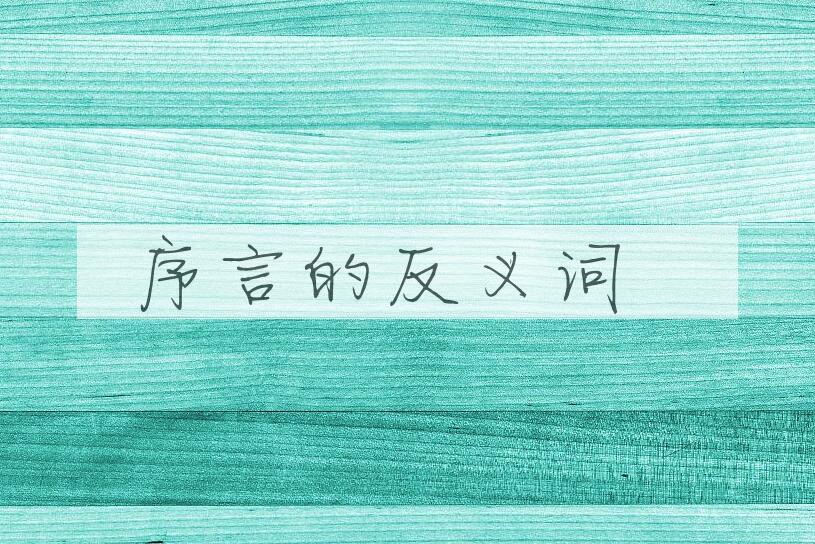 序言的反义词